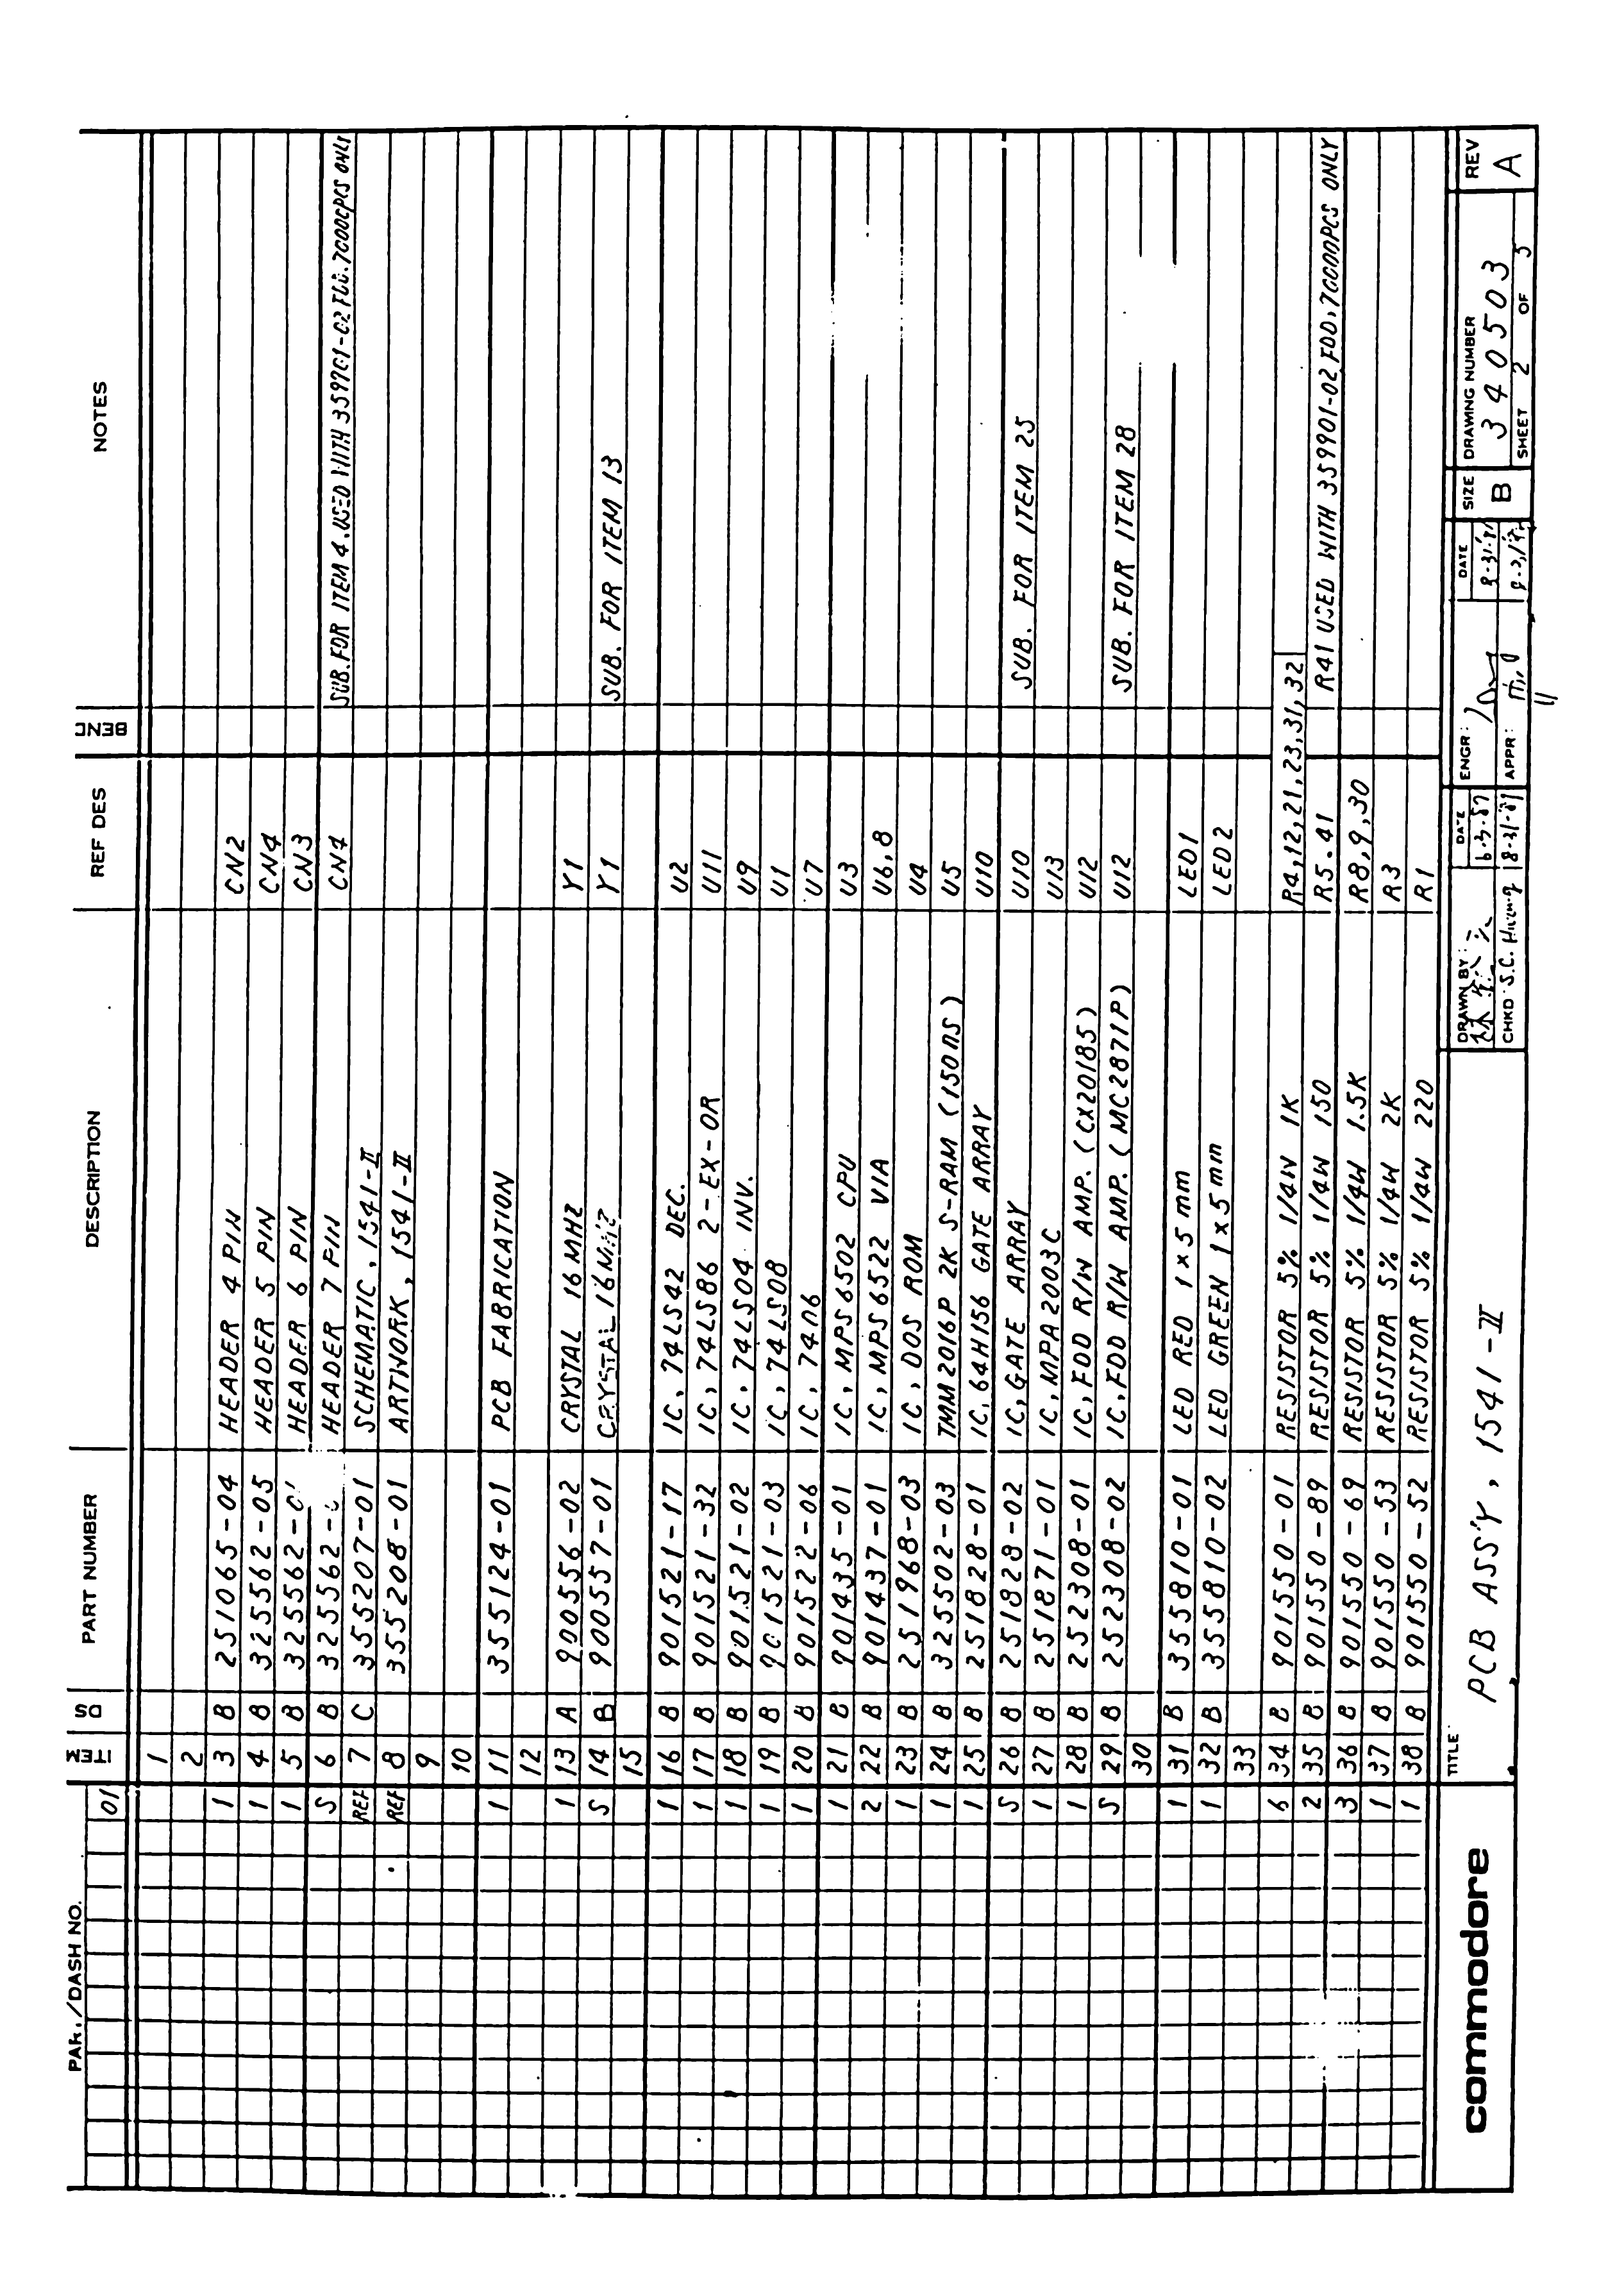 PAR./DASH NO. ITEM DS PART NUMBER DESCRIPTION REF DES BENC NOTES
01
1
2
1 3 B 251065-04 HEADER 4 PIN CN2
1 4 B 325562-05 HEADER 5 PIN CN4
1 5 B 325562- HEADER 6 PIN CN3
S 6 B 325562- HEADER 7 PIN CN4 SUB. FOR ITEM 4. USED WITH ONLY
REF 7 C 355207-01 SCHEMATIC, 1541-II
REF 8 355208-01 ARTWORK, 1541-II
9
10
1 11 355124-01 PCB FABRICATION
12
1 13 A 900556-02 CRYSTAL 16 MHZ Y1
S 14 B 900557-01 CRYSTAL 16 MHZ Y1 SUB. FOR ITEM 13
15
1 16 B 901521-17 IC, 74LS42 DEC. U2
1 17 B 901521-32 IC, 74LS86 2-EX-OR U11
1 18 B 901521-02 IC, 74LS04 INV. U9
1 19 B 901521-03 IC, 74LS08 U1
1 20 B 901522-06 IC, 7406 U7
1 21 B 901435-01 IC, MPS6502 CPU U3
2 22 B 901437-01 IC, MPS6522 VIA U6,8
1 23 B 251968-03 IC, DOS ROM U4
1 24 B 325502-03 TMM2016P 2K S-RAM (150ns) U5
1 25 B 251828-01 IC, 64H156 GATE ARRAY U10
S 26 B 251828-02 IC, GATE ARRAY U10 SUB. FOR ITEM 25
1 27 B 251871-01 IC, MPA2003C U13
1 28 B 252308-01 IC, FDD R/W AMP. (CX20185) U12
S 29 B 252308-02 IC, FDD R/W AMP. (MC2871P) U12 SUB. FOR ITEM 28
30
1 31 B 355810-01 LED RED 1x5 mm LED1
1 32 B 355810-02 LED GREEN 1x5 mm LED2
33
6 34 B 901550-01 RESISTOR 5% 1/4W 1K R4,12,21,23,31,32
2 35 B 901550-89 RESISTOR 5% 1/4W 150 R5.41 R41 USED WITH 359901-02 FDD, ONLY
3 36 B 901550-69 RESISTOR 5% 1/4W 1.5K R8,9,30
1 37 B 901550-53 RESISTOR 5% 1/4W 2K R3
1 38 B 901550-52 RESISTOR 5% 1/4W 220 R1
commodore
TITLE PCB ASS'Y, 1541-II
DRAWN BY: DATE
CHKD S.C. Huang
ENGR: DATE
APPR:
SIZE B
DRAWNG NUMBER 340503
SHEET 2 OF 5
REV A